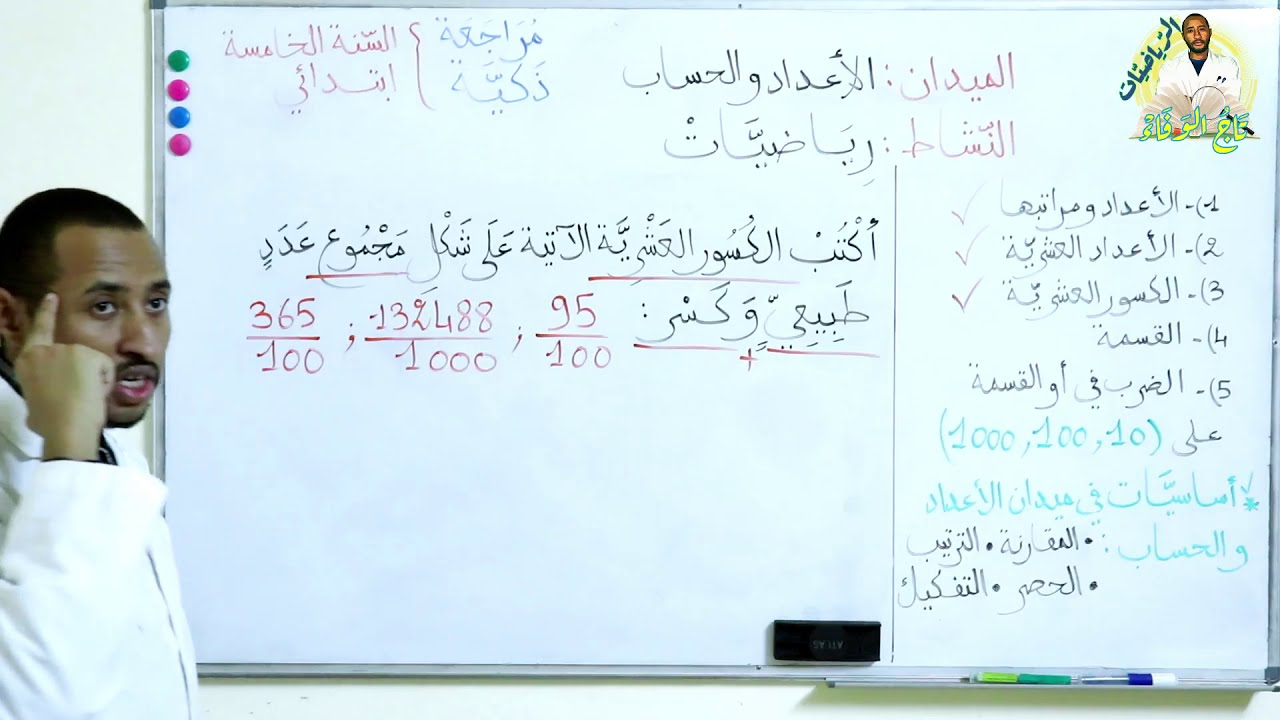 الرّياضيّات
تَاجُ الوَفَاءْ
الميدان: الأعداد والحساب
النّشاط: رِيَاضيَّاتْ
مُرَاجَعَة
ذَكيَّة
السّنة الخامسة
ابتدائي
أُكْتُبْ الكُسُور العَشْرِيَّة الآتِية عَلَى شَكْل مَجْمُوع عَدَدٍ
طَبِيعِيّ وَكَسْر: 95/100 ; 132488/1000 ; 365/100
+
1)- الأعداد ومراتبها ✓
2)- الأعداد العشريّة ✓
3)- الكسور العشريّة ✓
4)- القسمة
5)- الضرب في أو القسمة
على (10, 100, 1000)
* أساسيَّات في ميدان الأعداد
والحساب: • المقارنة • الترتيب
• الحصر • التفكيك
ATLAS